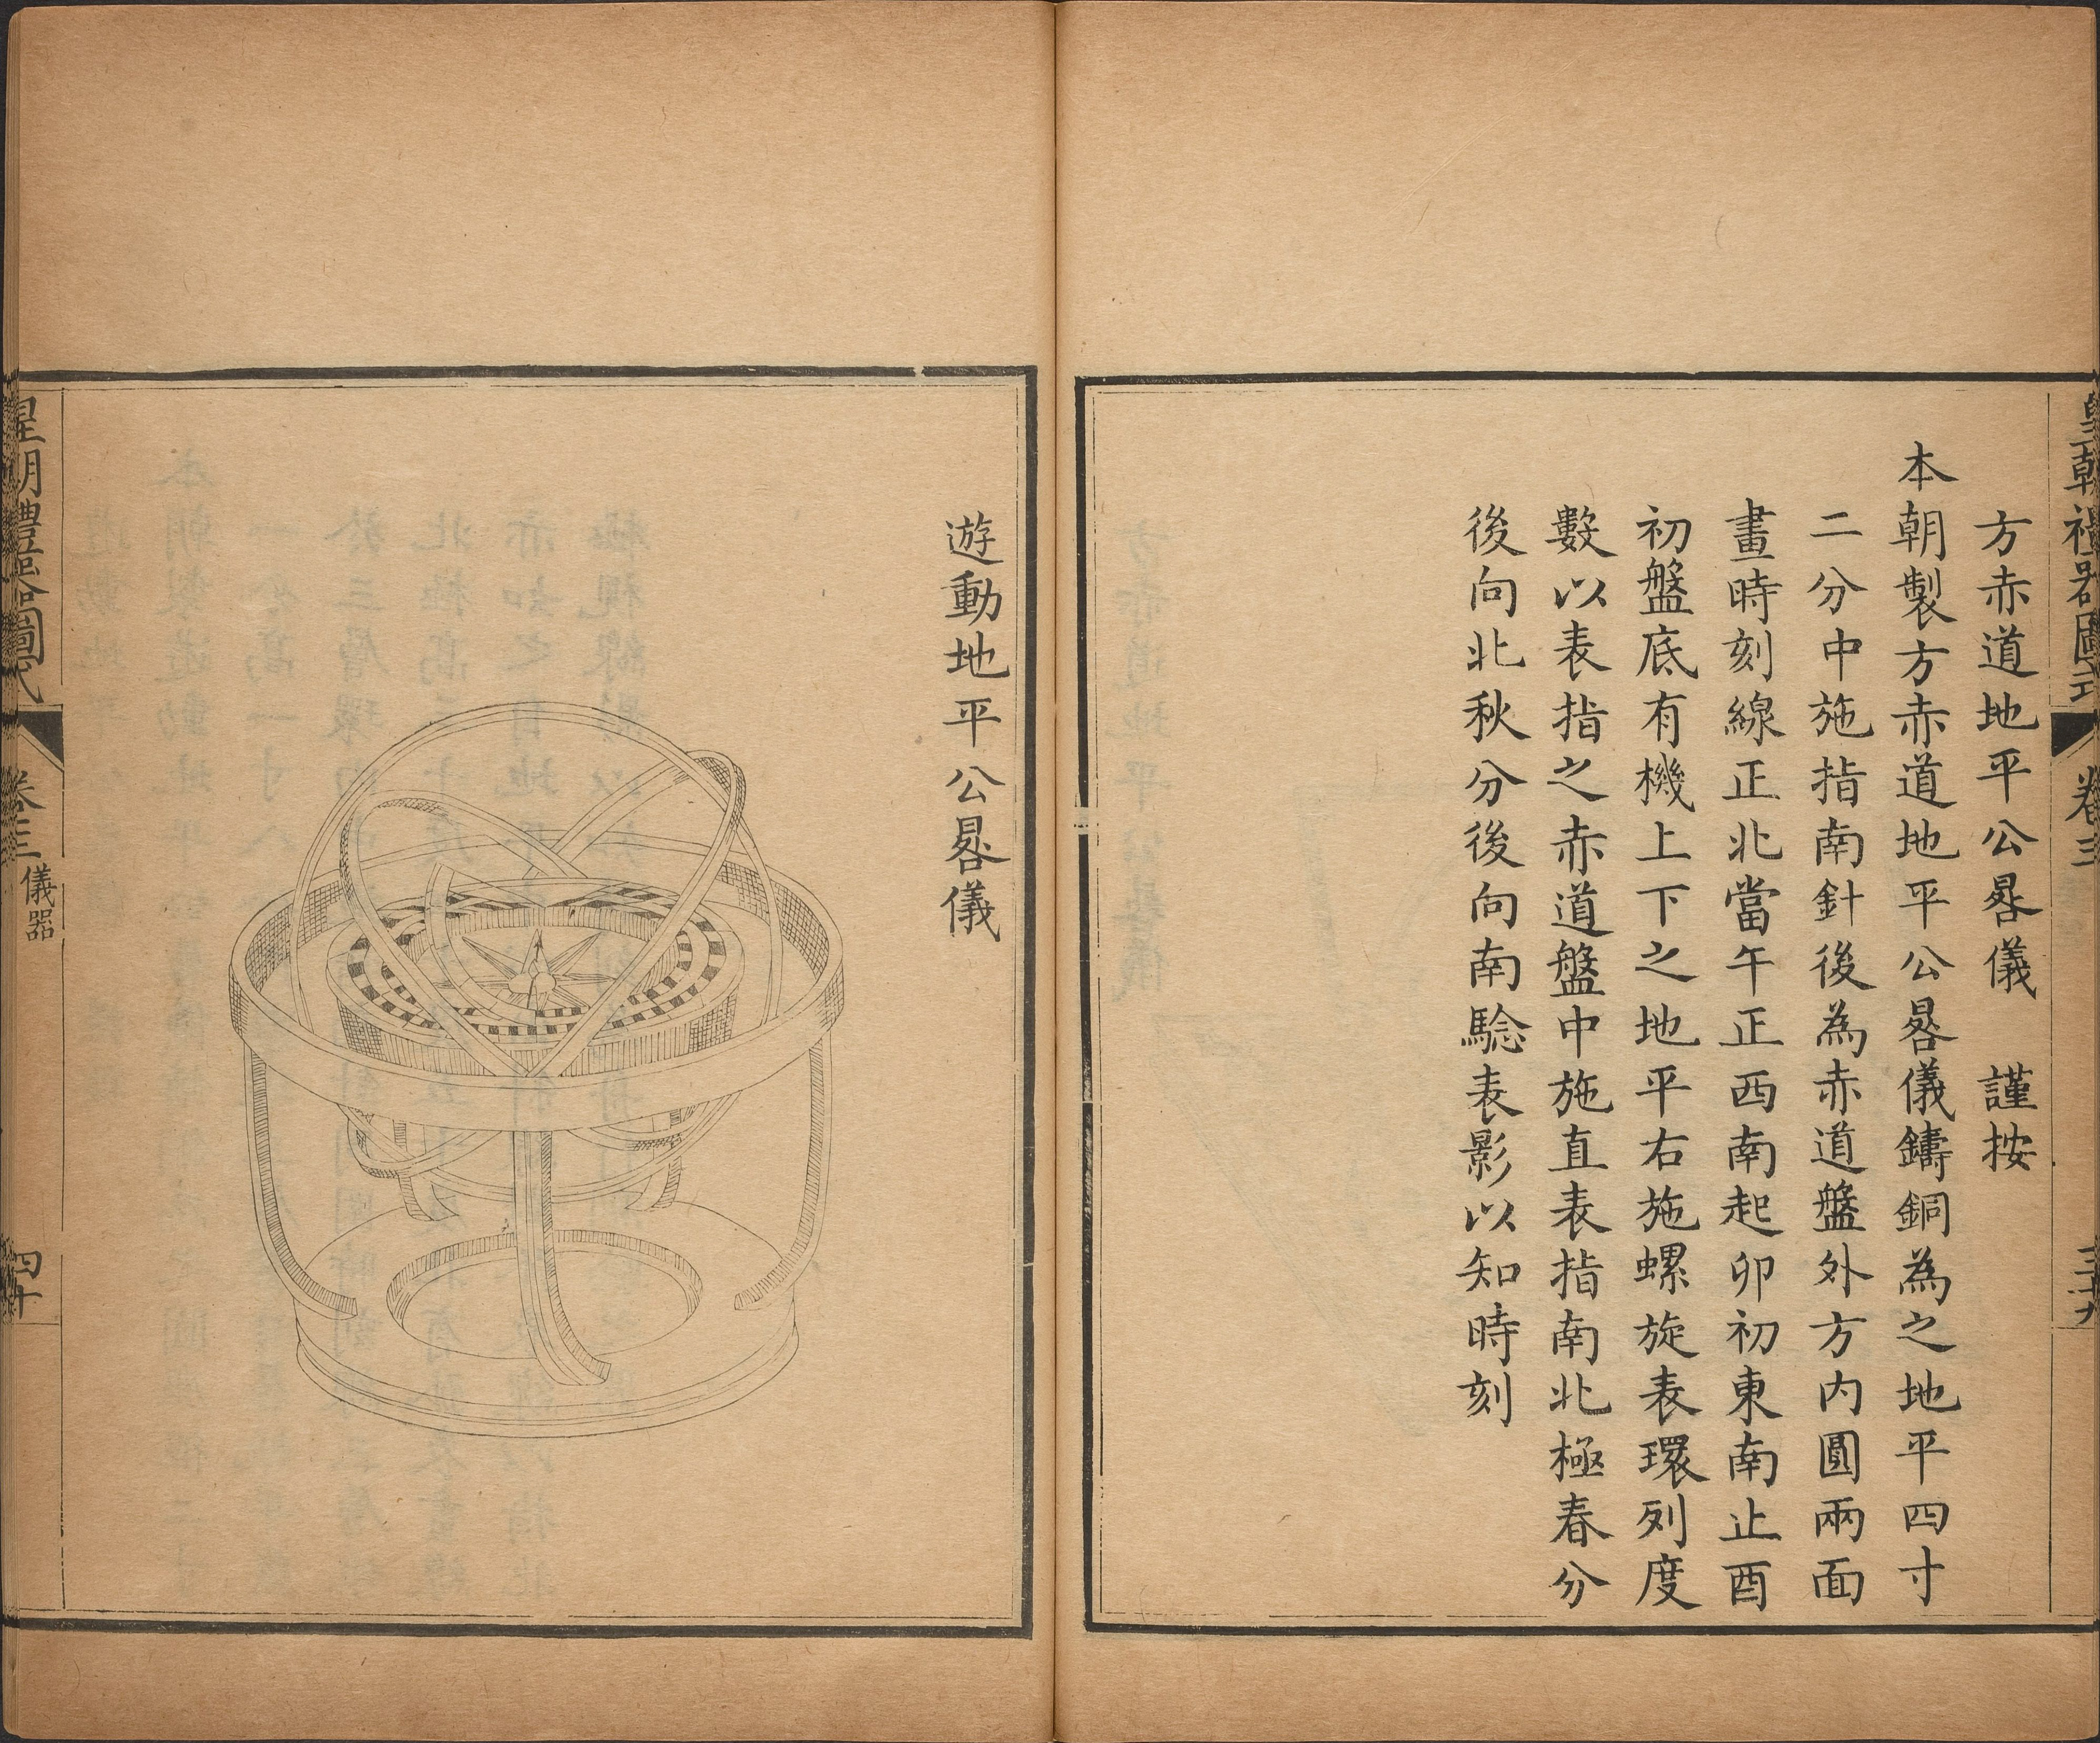 皇朝禮器圖式
卷三
三十九
方赤道地平公晷儀　謹按
本朝製方赤道地平公晷儀鑄銅為之地平四寸
二分中施指南針後為赤道盤外方內圓兩面
畫時刻線正北當午正西南起卯初東南止酉
初盤底有機上下之地平右施螺旋表環列度
數以表指之赤道盤中施直表指南北極春分
後向北秋分後向南騐表影以知時刻
遊動地平公晷儀
皇朝禮器圖式
卷三
儀器
四十